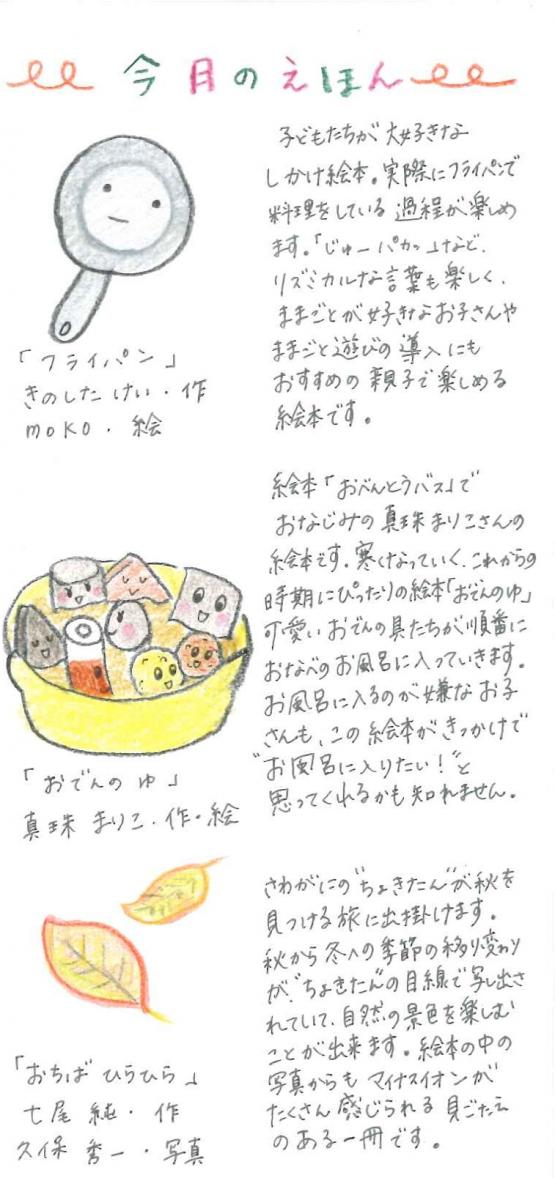 今月のえほん
「フライパン」
きのした けい・作
moko・絵
子どもたちが大好きな
しかけ絵本。実際にフライパンで
料理をしている過程が楽しめ
ます。「じゅーパカッ」など、
リズミカルな言葉も楽しく、
ままごとが好きなお子さんや
ままごと遊びの導入にも
おすすめの親子で楽しめる
絵本です。
「おでんのゆ」
真珠 まりこ・作・絵
絵本「おべんとうバス」で
おなじみの真珠まりこさんの
絵本です。寒くなっていく、これからの
時期にぴったりの絵本「おでんのゆ」
可愛いおでんの具たちが順番に
おなべのお風呂に入っていきます。
お風呂に入るのが嫌なお子
さんも、この絵本がきっかけで
"お風呂に入りたい!"と
思ってくれるかも知れません。
「おちば ひらひら」
七尾 純・作
久保 秀一・写真
さわがにの"ちょきたん"が秋を
見つける旅に出掛けます。
秋から冬への季節の移り変わり
が、"ちょきたん"の目線で写し出さ
れていて、自然の景色を楽しむ
ことが出来ます。絵本の中の
写真からもマイナスイオンが
たくさん感じられる見ごたえ
のある一冊です。